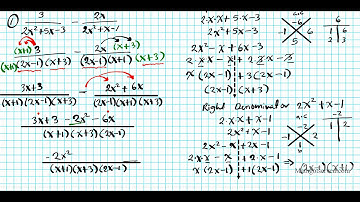 ① 3/(2x²+5x-3) - 2x/(2x²+x-1)
(x+1)3/((x+1)(2x-1)(x+3)) - 2x(x+3)/((2x-1)(x+1)(x+3))
3x+3/((x+1)(2x-1)(x+3)) - 2x²+6x/((x+1)(2x-1)(x+3))
3x+3-2x²-6x/((x+1)(x+3)(2x-1))
-2x²/((x+1)(x+3)(2x-1))
2·x·x+5·x-3
2x²+5x-3
2x²-x+6x-3
2·x·x-x+2·x·3-x·3
x(2x-1)+3(2x-1)
(2x-1)(x+3)
a·c
-6
-1 6
5
6
1 6
2 3
Right Denominator 2x²+x-1
2·x·x+x-1
2x²+x-1
2x²-x+2x-1
2·x·x-x+2·x-1
x(2x-1)+1(2x-1) → (2x-1)(x+1)
a·c
-2
-1 2
1
-2
1 2